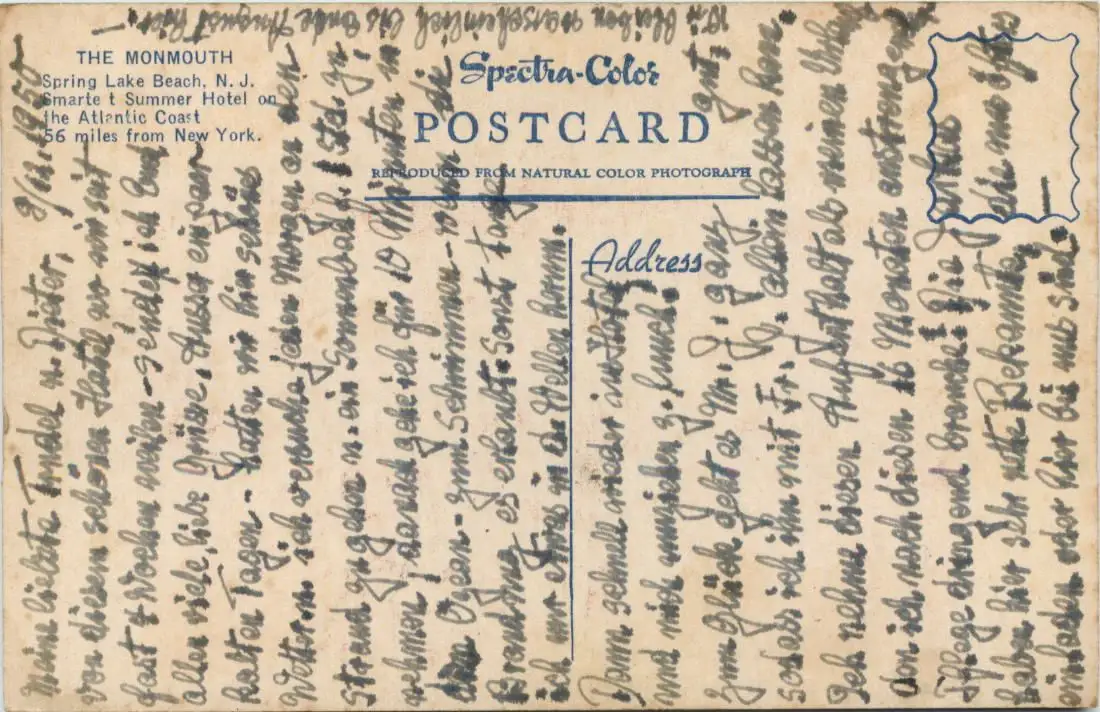 THE MONMOUTH
Spring Lake Beach, N. J.
Smarte t Summer Hotel on
the Atlantic Coast
56 miles from New York.
Spectra-Color
POSTCARD
REPRODUCED FROM NATURAL COLOR PHOTOGRAPH
Address
Meine liebste Trudel u. Dieter,
von diesen schönen Hotel wo wir seit
fast 4 Wochen weilen - sende ich Euch
allen viele, liebe Grüsse. Ausser ein paar
kalten Tagen - hatten wir hier schönes
Wetter u. ich versuche jeden Morgen an den
Strand zu gehen u. ein Sonnenbad f. 1 Std. zu
nehmen, danach gehe ich für 10 Minuten in
den Ozean - zum Schwimmen - wenn die
Brandung es erlaubt. Sonst tauge
ich nur etwas in den Wellen herum.
Dann schnell wieder ins Hotel
und mich umziehen z. Lunch!
Zum Glück geht es Mr. J. ganz gut,
sodass ich ihn mit Fr. J. allein lassen kann.
Ich nehme diesen Aufenthalt als meinen Urlaub,
den ich nach diesen 16 Monaten anstrengend
Pflege dringend brauche. Die
haben hier sehr nette Bekannte, die uns öfters
einladen oder hier bei uns sind. —
Wir bleiben warscheinlich bis Ende August hier. —